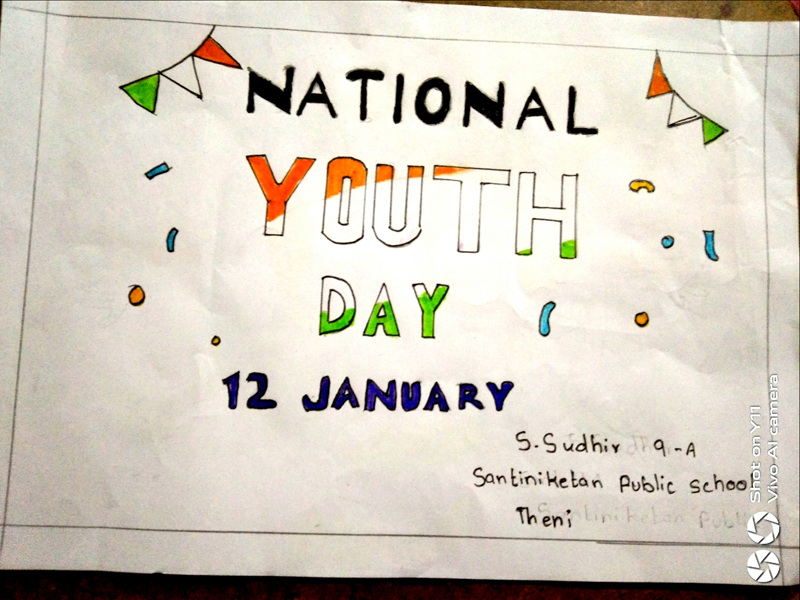 NATIONAL
YOUTH
DAY
12 JANUARY
S.Sudhir 9-A
Santiniketan Public school
Theni
Shot on Y11
Vivo AI camera